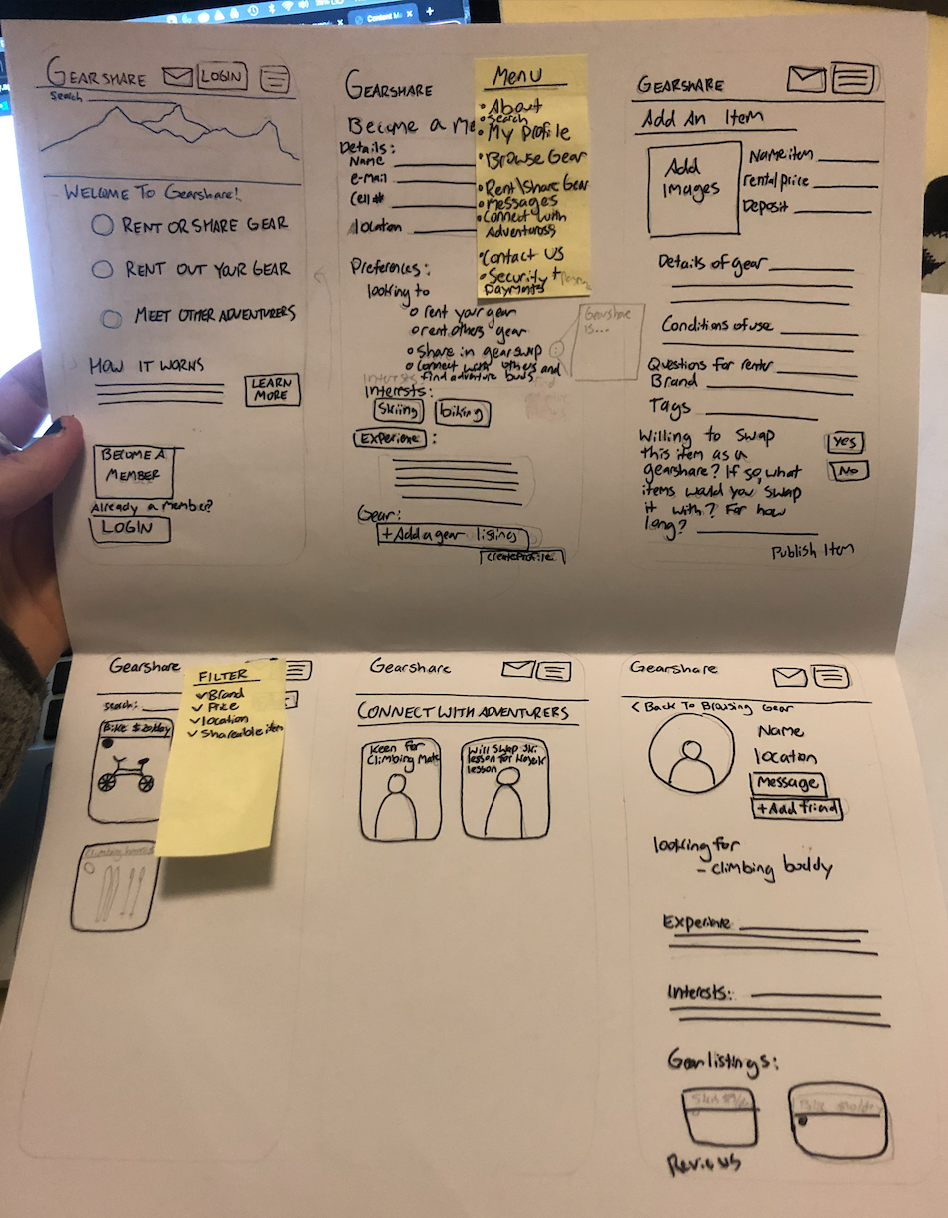 GEARSHARE
LOGIN
Search
WELCOME TO Gearshare!
RENT OR SHARE GEAR
RENT OUT YOUR GEAR
MEET OTHER ADVENTURERS
HOW IT WORKS
LEARN
MORE
BECOME A
MEMBER
Already a Member?
LOGIN
GEARSHARE
Become a Me
Details:
Name
e-mail
Cell #
location
Preferences:
looking to
rent your gear
rent others gear
Share in gearswap
Connect with others and
find adventure buds
Interests:
Skiing
biking
Experience:
Gear:
+Add a gear listing
Create Profile
Menu
About
Search
My Profile
Browse Gear
Rent\Share Gear
Messages
Connect with
Adventurers
Contact US
Security +
payments
Gearshare
is...
GEARSHARE
Add An Item
Add
Images
Name item
rental price
Deposit
Details of gear
Conditions of use
Questions for renter
Brand
Tags
Willing to swap
this item as a
gearshare? If so, what
items would you swap
it with? For how
long?
Yes
No
Publish Item
Gearshare
Search:
Bike $20/day
FILTER
Brand
Price
location
Shareable item
Gearshare
CONNECT WITH ADVENTURERS
Keen for
Climbing Mate
Will Swap Ski
lesson for Kayak
lesson
Gearshare
< Back To Browsing Gear
Name
location
Message
+Add friend
looking for
- climbing buddy
Experience
Interests:
Gear listings:
Reviews